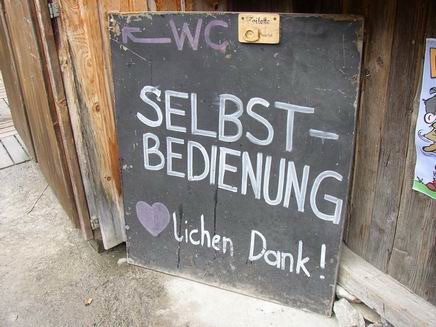 WC
Toilette
SELBST-
BEDIENUNG
lichen Dank!